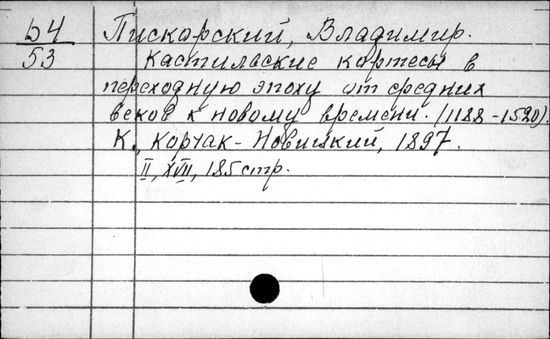 Ь4 Пискорский, Владимир.
53 Кастильские кортесы в
переходную эпоху от средних
веков к новому времени. (1188-1520).
К., Корчак-Новицкий, 1897.
II, XVII, 185 стр.